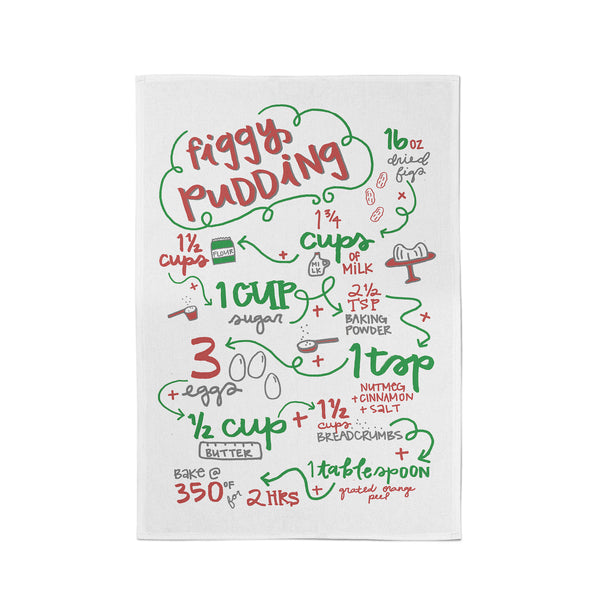 figgy
pudding
16 oz
dried
figs
x
1 ¾
cups
of
milk
MILK
+
1 ½
cups
FLOUR
+
1 cup
sugar
+
2 ½
TSP
BAKING
POWDER
x
1 tsp
NUTMEG
+ CINNAMON
+ SALT
+
3
eggs
+
½ cup
BUTTER
+
1 ½
cups
BREADCRUMBS
+
1 tablespoon
grated orange
peel
+
BAKE @
350 °F
for 2 HRS